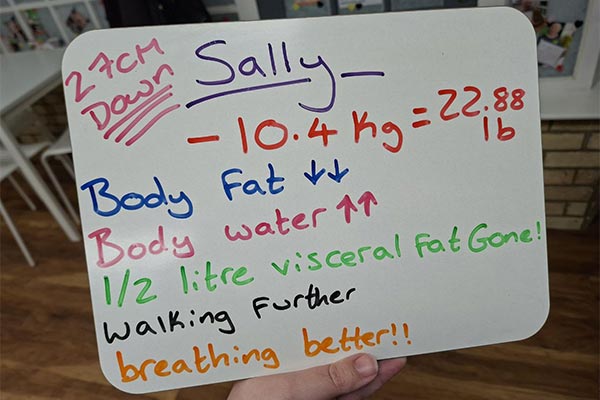 27cm
Down
Sally
- 10.4 Kg = 22.88
lb
Body Fat ↓↓
Body water ↑↑
1/2 litre visceral Fat Gone!
Walking Further
breathing better!!